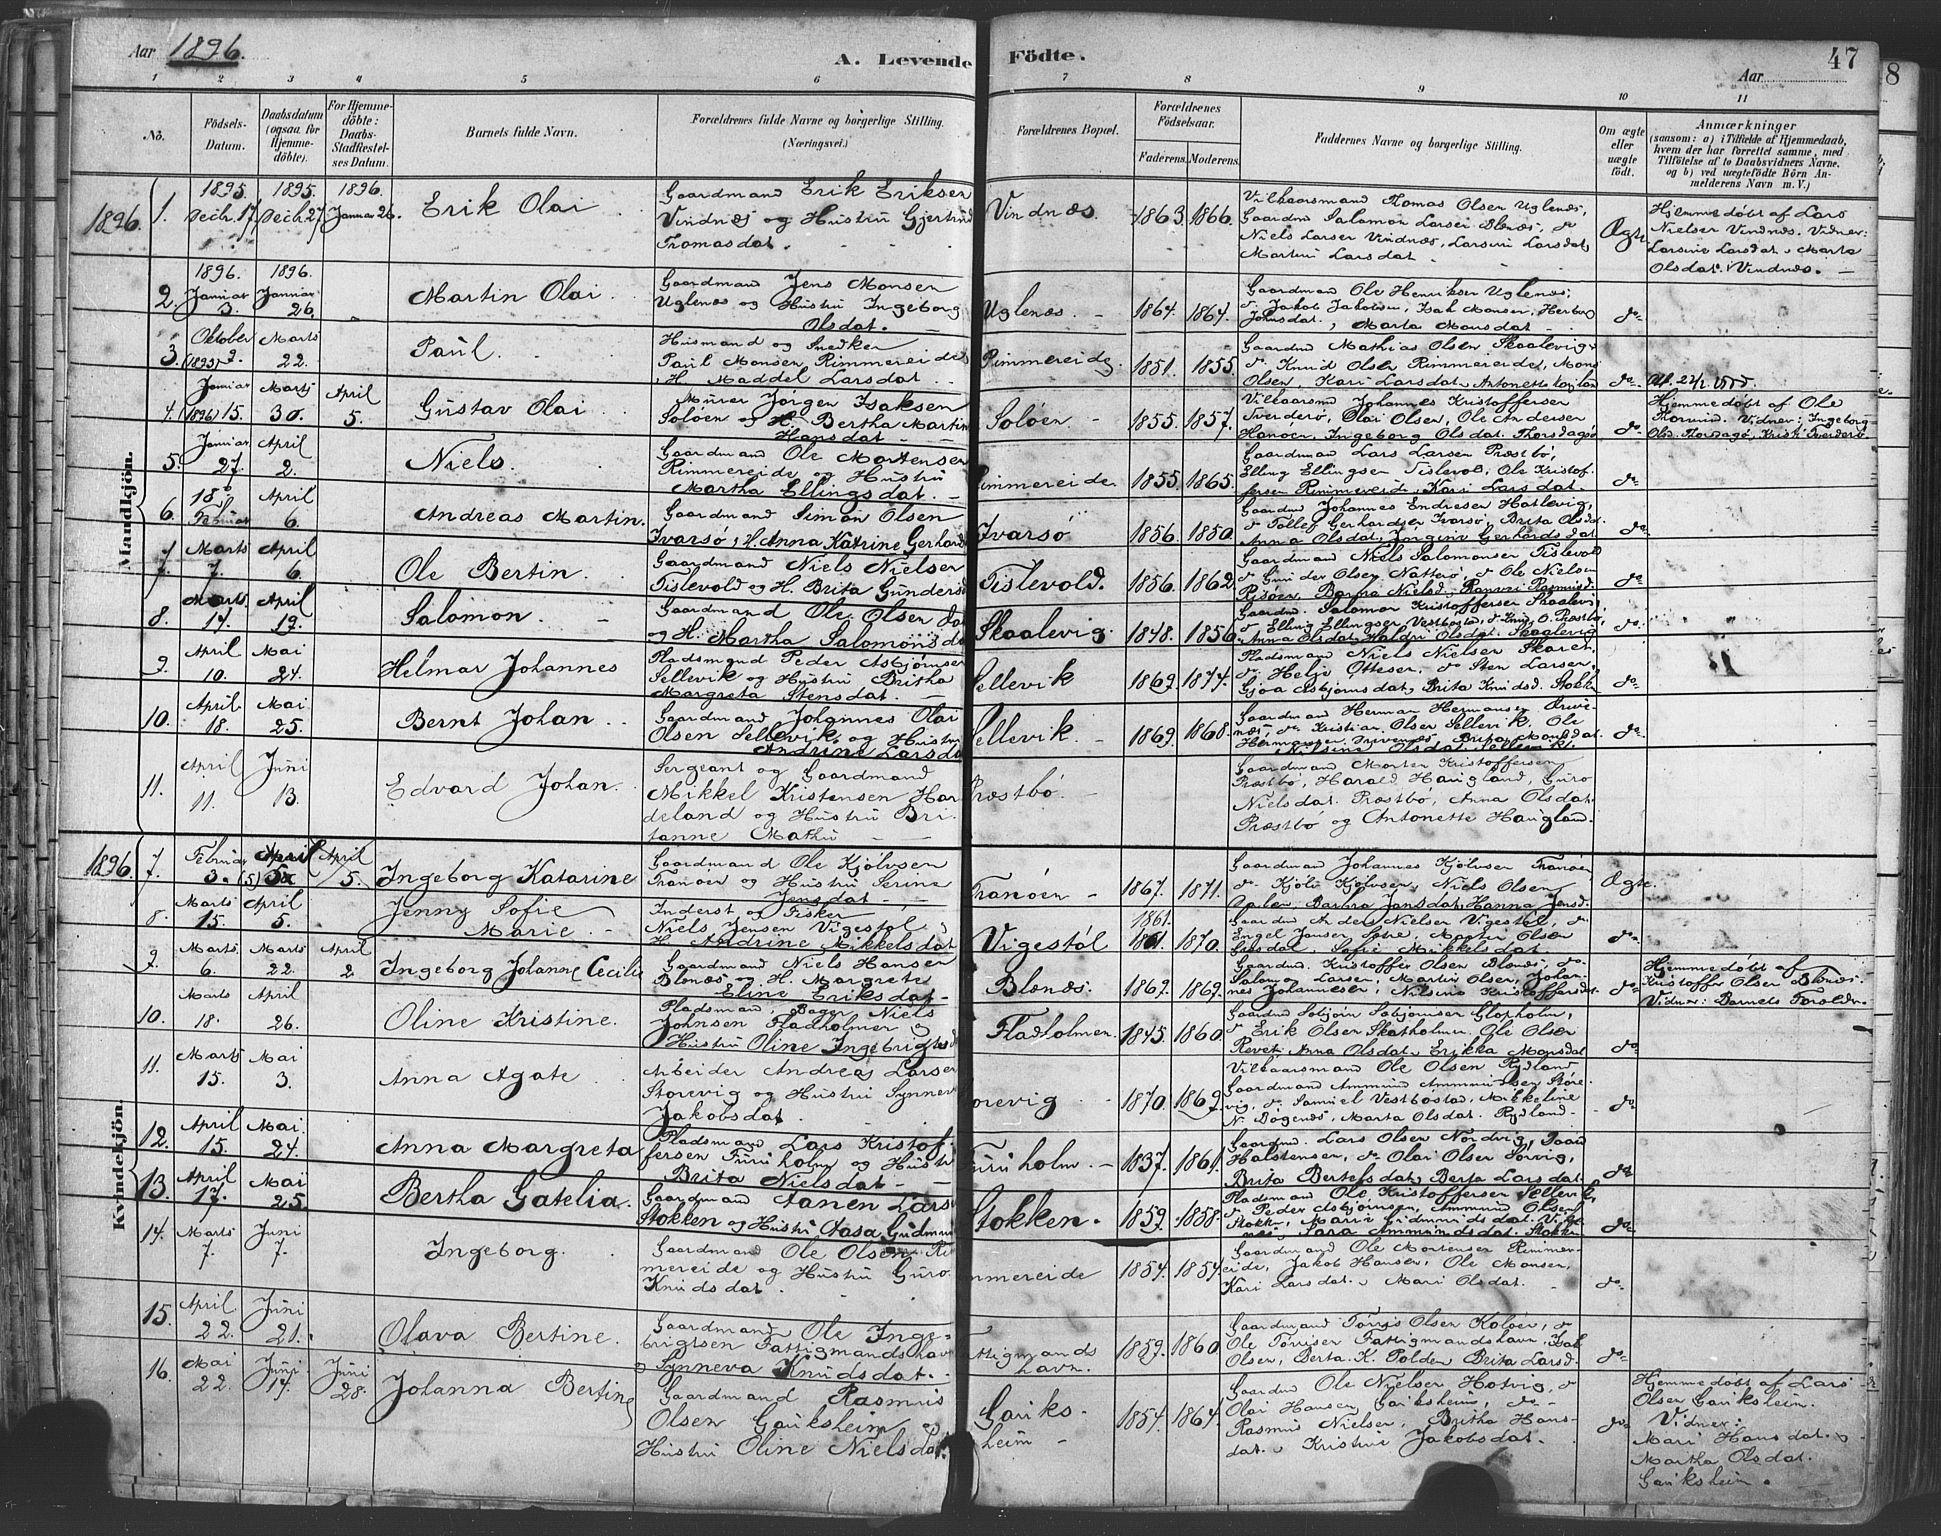 Aar 1896.
A. Levende Födte.
47
Aar
8
1 2 3 4 5 6 7 8 9 10 11
No.
Födsels-Datum.
Daabsdatum (ogsaa for Hjemme-döbte).
For Hjemme-döbte: Daabs-Stadfæstel-ses Datum.
Barnets fulde Navn.
Forældrenes fulde Navne og borgerlige Stilling. (Næringsvei.)
Forældrenes Bopæl.
Forældrenes Födselsaar.
Faderens. Moderens.
Faddernes Navne og borgerlige Stilling.
Om ægte eller uægte födt.
Anmærkninger
(saasom: a) i Tilfælde af Hjemmedaab, hvem der har forrettet samme, med Tilföielse af to Daabsvidners Navne, og b) ved uægtefödte Börn An-melderens Navn m. V.)
Mandkjön.
1896. 1. 1895. Decbr. 17. 1895. Decbr. 27. 1896. Januar 26.
Erik Olai
Gaardmand Erik Eriksen
Vindnæs og Hustru Gjertrud
Thomasdat.
Vindnæs. 1863. 1866.
Vilkaarsmand Thomas Olsen Uglenæs,
Gaardm. Salamon Larsen Blenæs, do
Niels Larsen Vindnæs, Larsine Larsdat,
Martine Larsdat
Ægte
Hjemmedøbt af Lars
Nielsen Vindnæs. Vidner:
Larsine Larsdat. Marta
Olsdat. Vindnæs.
2. 1896. Januar 3. 1896. Januar 26.
Martin Olai
Gaardmand Jens Monsen
Uglenæs og Hustru Ingeborg
Olsdat.
Uglenæs. 1864. 1864.
Gaardmand Ole Henriksen Uglenæs,
do Jakob Jakobsen, Isak Monsen, Herborg
Johnsdat., Marta Monsdat
do
3. Oktober (1895) 2. Marts 22.
Paul
Husmand og Snedker
Paul Monsen Rimmereide
H. Maddel Larsdat
Rimmereide 1851. 1855.
Gaardmand Mathias Olsen Skaalevig,
do Knud Olsen Rimmereide, Mons
Olsen, Kari Larsdat, Antonette
do
4. Januar (1896) 15. Marts 30. April 5.
Gustav Olai
Murer Jørgen Isaksen
Soløen og H. Bertha Martin
Hansdat
Soløen 1855. 1857.
Vilkaarsmd Johannes Kristoffersen
Tverderø, Olai Olsen, Ole Andersen
Hanøen, Ingeborg Olsdat. Thorsdagø
do
Hjemmedøbt af Ole
Vidner: Ingeborg
Olsd. Thorsdagø, Kristi Tverderø.
5. Januar 27. April 2.
Niels.
Gaardmand Ole Mortensen
Rimmereide og Hustru
Martha Ellingsdat.
Rimmereide 1855. 1865.
Gaardmand Lars Larsen Præstbø,
Elling Ellingsen Tislevold, Ole Kristof-
fersen Rimmereide, Kari Larsdat
do
6. 18 Februar April 6.
Andreas Martin.
Gaardmand Simon Olsen
Ivarsø, H. Anna Katrine Gerhards
Ivarsø 1856. 1850.
Gaardmd Johannes Endresen Hatlevig,
do Tollef Gerhardsen Ivarsø, Brita Olsdat.
Anna Olsdat, Jørgine Gerhardsdat
do
7. Marts 7. April 6.
Ole Bertin.
Gaardmand Niels Nielsen
Tislevold og H. Brita Gundersd
Tislevold. 1856. 1862.
Gaardmand Niels Salomonsen Tislevold
do Gunder Olsen Natterø, do Ole Nielsen
Risøen, Barbra Nielsd, Rasmusd.
do
8. Marts 14. April 19.
Salomon.
Gaardmand Ole Olsen
og H. Martha Salomonsda
Skaalevig. 1848. 1856.
Gaardm. Salamon Kristoffersen Skaalevig,
do Elling Ellingsen Vestbostad,
Anna Olsdat, Olsdat. Skaalevig
do
9. April 10. Mai 24.
Helmar Johannes
Pladsmand Peder Asbjørnsen
Sellevik og Hustru Britha
Margreta Stensdat.
Sellevik 1869. 1874.
Pladsmand Niels Nielsen Skaret,
do Helje Ottesen, do Sten Larsen,
Gjøa Asbjørnsdat, Brita Knudsd. Stokken
do
10. April 18. Mai 25.
Bernt Johan.
Gaardmand Johannes Olai
Olsen Sellevik og Hustru
Andrine Larsda
Sellevik. 1869. 1868.
Gaardmand Herman Hermansen
do Kristian Olsen Sellevik, Ole
Hermansen, Brita Monsdat
Nilsine Olsdat Sellevik.
do
11. April 11. Juni 13.
Edvard Johan.
Sergeant og Gaardmand
Mikkel Kristensen Har-
deland og Hustru Bri-
tanne Mathu
Præstbø.
Gaardmand Morten Kristoffersen
Præstbø, Harald Haugland, Guro
Nielsdat. Præstbø, Anna Olsdat.
Præstbø og Antonette Haugland.
Kvindekjön.
1896. 7. Februar 3. April (5) April 5.
Ingeborg Katarine
Gaardmand Ole Kjølvsen
Tranøen og Hustru Serine
Jensdat
Tranøen 1867. 1871.
Gaardmand Johannes Kjølvsen Tranøen
do Kjølv Kjølvsen, Niels Olsen
Barbra Jansdat, Hanna Jensd.
Ægte.
8. Marts 15. April 5.
Jenny Sofie
Marie.
Inderst og Fisker
Niels Jensen Vigestøl
H. Andrine Mikkelsdat
Vigestøl 1861. 1870.
Gaardm Anders Nielsen Vigestøl, do
Engel Jansen, Martin Olsen
Sofie Mikkelsdat
do
9. Marts 6. Marts 22. April 2.
Ingeborg Johanne Cecilie
Gaardmand Niels Hansen
Blenæs. H. Margrete
Eline Eriksdat
Blenæs. 1869. 1869.
Gaardmd. Kristoffer Olsen Blenæs, do
Salomon Larsen, Martin Olsen, Johan-
nes Johannesen, Nilsine Kristoffersdat.
do
Hjemmedøbt af
Kristoffer Olsen Blenæs.
Vidner: Barnets Forældre.
10. Marts 18. April 26.
Oline Kristine.
Pladsmand, Bager Niels
Johnsen Fladholmen og
Hustru Oline Ingebrigtsd
Fladholmen 1845. 1860.
Gaardmd Asbjørnsen Glopholm,
do Erik Olsen Skatholmen, Ole Olsen
Anna Olsdat, Erikka Monsdat
do
11. Marts 15. Mai 3.
Anna Agate
Arbeider Andreas Larsen
Storevig og Hustru Synneva
Jakobsdat
Storevig 1870. 1869.
Vilkaarsmand Ole Olsen Rydland
Gaardmand Ammund Ammundsen Store-
vig, do Samuel Vestbostad, Mikkeline
N. Bøgenæs, Marta Olsdat. Rydland
do
12. April 15. Mai 24.
Anna Margreta
Pladsmand Lars Kristof-
fersen Furuholm og Hustru
Brita Nielsdat
Furuholm. 1837. 1861.
Gaardmd. Lars Olsen Nordvig,
Halstensen, do Olai Olsen Sørvig,
Brita Bertelsdat, Berta Larsdat
do
13. April 17. Mai 25.
Bertha Gatelia.
Gaardmand Aanen Lars
Stokken og Hustru Aasa Gudmun
Stokken. 1859. 1858.
Pladsmand Ole Kristoffersen Sellevik,
do Peder Asbjørnsen, Ammund Olsen
Stokken, Mari Gudmundsdat.
Sara Ammundsdat. Stokken
do
14. Marts 7. Juni 7.
Ingeborg.
Gaardmand Ole Olsen Ri-
mereide og Hustru Guro
Knudsdat.
Rimmereide 1854. 1854.
Gaardmand Ole Mortensen Rimmer-
eide, Jakob Hansen, Ole Monsen,
Kari Larsdat, Mari Olsdat.
do
15. April 22. Juni 21.
Olava Bertine.
Gaardmand Ole Inge-
brigtsen Fattigmandshavn
og Synneva Knudsdat.
Fattigmands
havn. 1859. 1860
Gaardmand Tørris Olsen Koløen, do
Ole Tørrisen Fattigmandshavn, Isak
Olsen, Berta K. Polden, Brita Larsd.
do
16. Mai 22. Juni 14. Juni 28.
Johanna Bertine
Gaardmand Rasmus
Olsen Gauksheim og
Hustru Oline Nielsdat.
Gauks-
heim 1854. 1864.
Gaardm Ole Nielsen Hotvig, do
Olai Hansen Gauksheim, do
Rasmus Nielsen, Britha Hans-
dat. Kristine Jakobsdat.
do
Hjemmedøbt af Lars
Olsen Gauksheim.
Vidner:
Mari Hansdat. og
Martha Olsdat.
Gauksheim.